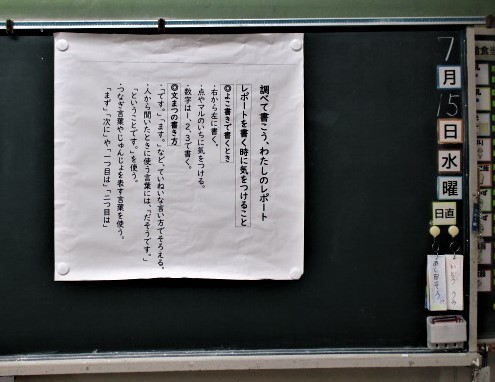 調べて書こう、わたしのレポート
レポートを書く時に気をつけること
◎よこ書きで書くとき
・右から左に書く。
・点やマルのいちに気をつける。
・数字は1、2、3で書く。
◎文まつの書き方
・「です。」「ます。」など、ていねいな言い方でそろえる。
・人から聞いたときに使う言葉には、「だそうです。」
「ということです。」を使う。
・つなぎ言葉やじゅんじょを表す言葉を使う。
「まず」「次に」や「一つ目は」「二つ目は」
7
月
15
日
水
曜
日直